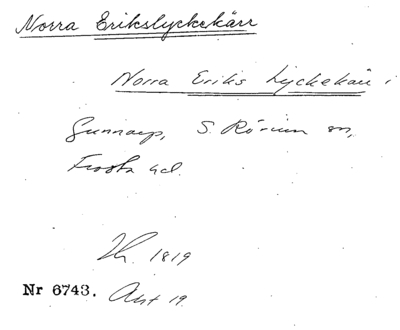 Norra Erikslyckekärr
Norra Eriks Lyckekärr i
Gunnarp, S. Rörum sn,
Frosta hd.
1819
Nr 6743. Akt 19.